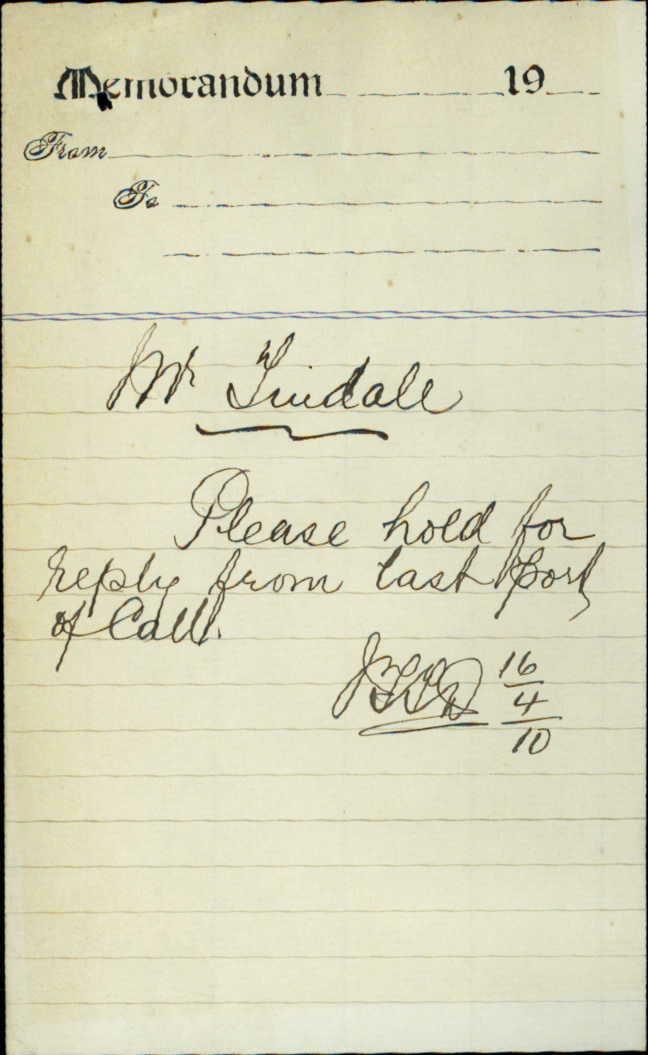 Memorandum 19
From
To
Mr Tindale
Please hold for
reply from last port
of Call.
16
4
10